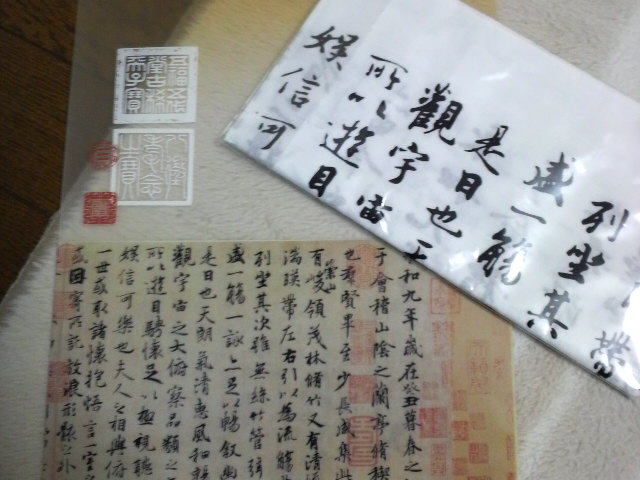 帶
列坐其
盛一觴
是日也天
觀宇宙
所以遊目
娛信可
五福五代
堂古稀
天子寶
八徵
耄念
之寶
和九年歲在癸丑暮春之
于會稽山陰之蘭亭脩稧
也群賢畢至少長咸集此
有崇山峻領茂林脩竹又有清
湍暎帶左右引以為流觴
列坐其次雖無絲竹管弦
盛一觴一詠亦足以暢敘幽
是日也天朗氣清惠風和暢
觀宇宙之大俯察品類之
所以遊目騁懷足以極視聽
娛信可樂也夫人之相與俯
一世或取諸懷抱悟言一室之
或因寄所託放浪形骸之外